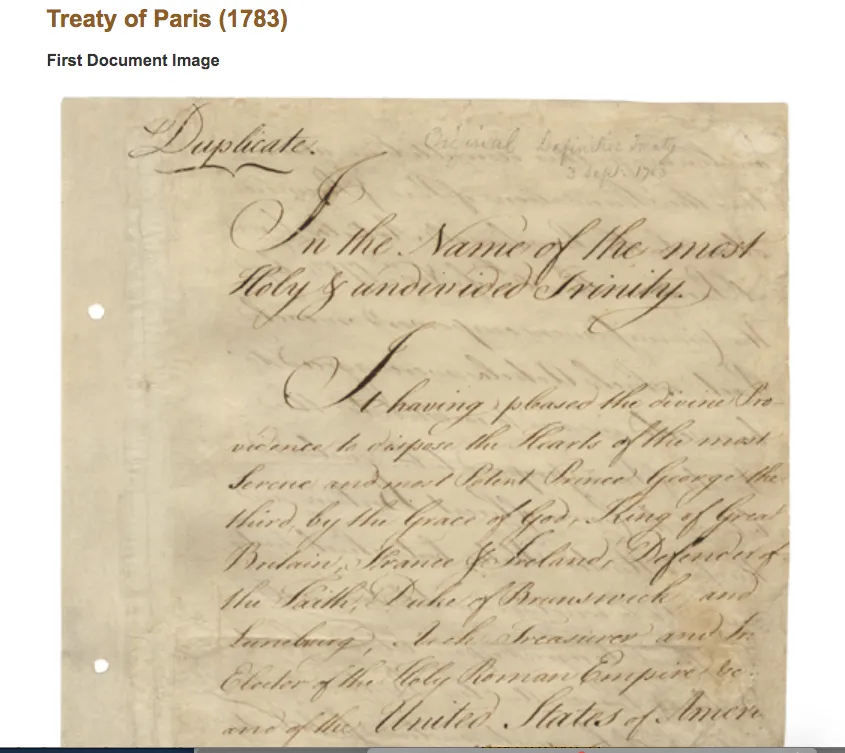 Treaty of Paris (1783)
First Document Image
Duplicate.
Original Definitive Treaty
3 Sept. 1783
In the Name of the most
Holy & undivided Trinity.
It having pleased the divine Pro
vidence to dispose the Hearts of the most
Serene and most Potent Prince George the
third, by the Grace of God, King of Great
Britain, France & Ireland, Defender of
the Faith, Duke of Brunswick and
Lunebourg, Arch Treasurer and
Elector of the Holy Roman Empire &c.
and of the United States of Ameri